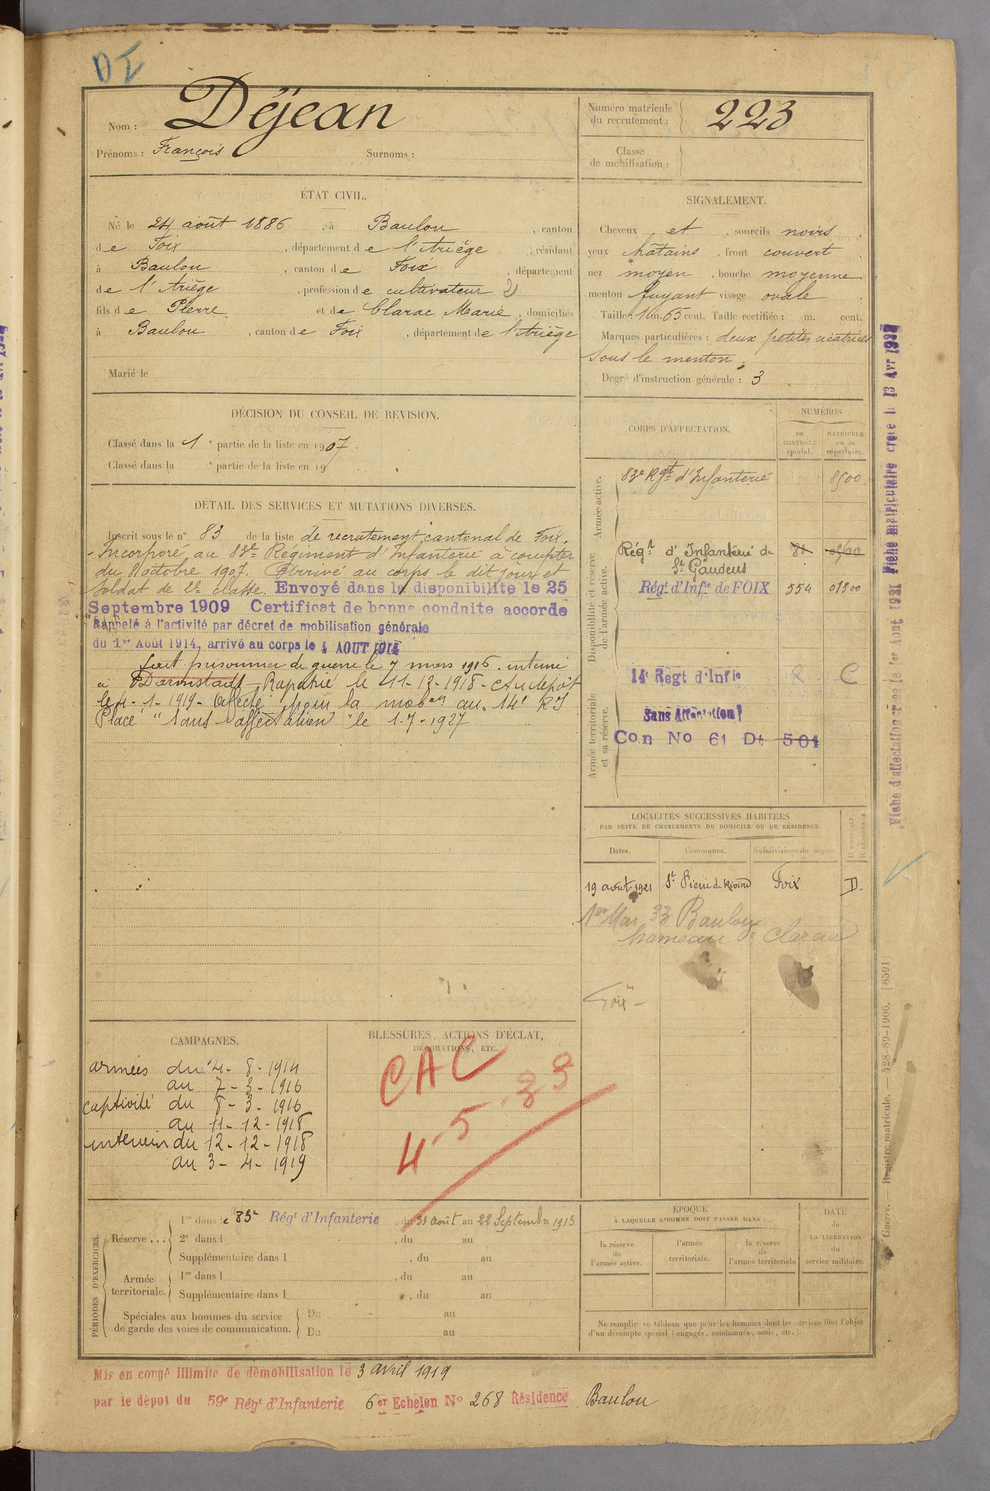 DI
Nom : Déjean
Prénoms : François Surnoms :
Numéro matricule du recrutement : 223
Classe de mobilisation :
ÉTAT CIVIL.
Né le 24 août 1886, à Baulou, canton
de Foix, département de l'Ariège, résidant
à Baulou, canton de Foix, département
de l'Ariège, profession de cultivateur
fils de Pierre et de Clarac Marie, domiciliés
à Baulou, canton de Foix, département de l'Ariège
Marié le
SIGNALEMENT.
Cheveux et, sourcils noirs
yeux châtains, front couvert
nez moyen, bouche moyenne
menton fuyant visage ovale
Taille : 1 m. 63 cent. Taille rectifiée : m. cent.
Marques particulières : deux petites cicatrices
sous le menton.
Degré d'instruction générale : 3
DÉCISION DU CONSEIL DE REVISION.
Classé dans la 1e partie de la liste en 1907.
Classé dans la e partie de la liste en 19
DÉTAIL DES SERVICES ET MUTATIONS DIVERSES.
Inscrit sous le n° 83 de la liste de recrutement cantonal de Foix.
Incorporé au 83e Régiment d'Infanterie à compter
du 8 octobre 1907. Arrivé au corps le dit jour et
soldat de 2e classe. Envoyé dans la disponibilité le 25
Septembre 1909 Certificat de bonne conduite accordé
Rappelé à l'activité par décret de mobilisation générale
du 1er Août 1914, arrivé au corps le 4 AOUT 1914
Fait prisonnier de guerre le 7 mars 1916. interné
à Darmstadt Rapatrié le 11-12-1918
le 4-1-1919 Affecté pour la mobon au 14e RI
Placé "Sans affectation" le 1-7-1927
CORPS D'AFFECTATION.
NUMÉROS
DU CONTROLE spécial.
MATRICULE ou du répertoire.
Armée active.
83e Rgt d'Infanterie 8500
Disponibilité et réserve de l'armée active.
Régt d'Infanterie de
St Gaudens
Régt d'Infie de FOIX 554 01300
Armée territoriale et sa réserve.
14e Régt d'Infie R C
Sans Affectation
Con No 61 Dt 501
LOCALITÉS SUCCESSIVES HABITÉES
PAR SUITE DE CHANGEMENTS DE DOMICILE OU DE RÉSIDENCE.
Dates. Communes. Subdivisions de région.
19 août 1921 St Pierre de Rivière Foix D.
1er Mar 33 Baulou
hameau de Clarac
Foix
CAMPAGNES.
armées du 4-8-1914
au 7-3-1916
captivité du 8-3-1916
au 11-12-1918
intérieur du 12-12-1918
au 3-4-1919
BLESSURES, ACTIONS D'ÉCLAT,
DÉCORATIONS, ETC.
CAC
4-5-33
PÉRIODES D'EXERCICES.
Réserve ...
1re dans le 83e Régt d'Infanterie, du 31 août au 22 Septembre 1913
2e dans l, du au
Supplémentaire dans l, du au
Armée territoriale.
1re dans l, du au
Supplémentaire dans l, du au
Spéciales aux hommes du service
de garde des voies de communication.
Du au
Du au
ÉPOQUE
A LAQUELLE L'HOMME DOIT PASSER DANS :
la réserve de l'armée active.
l'armée territoriale.
la réserve de l'armée territoriale.
DATE de LA LIBÉRATION du service militaire.
Ne remplir ce tableau que pour les hommes dont les services font l'objet
d'un décompte spécial (engagés, condamnés, omis, etc.)
Mis en congé illimité de démobilisation le 3 avril 1919
par le dépôt du 59e Régt d'Infanterie 6er Echelon No 268 Résidence Baulou
Guerre. Registre matricule. — 428-89-1906. [8591]